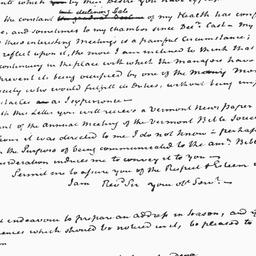 which by their desire you have
the constant declining State of my Health has conf
and sometimes to my chamber since Decr last a My
thus intruding Meetings is a painful circumstance;
reflect upon it, the more I am inclined to think that
continuing in the place with which the Managers have
prevent its being occupied by one of the Many Mem
society who would fulfil its Duties, without being imp
obstacles as I experience
with this Letter you will receive a Vermont News Paper
of the annual Meeting of the Vermont Bible Societ
it was directed to me I do not know - perhaps
the Purpose of being communicated to the amn. Bibl
consideration induces me to convey it to you
Permit me to assure you of the Respect & Esteem
I am Revd. Sir your ob. Servt.
endeavour to prepare an address in season, and if
which should be noticed in it, be pleased to